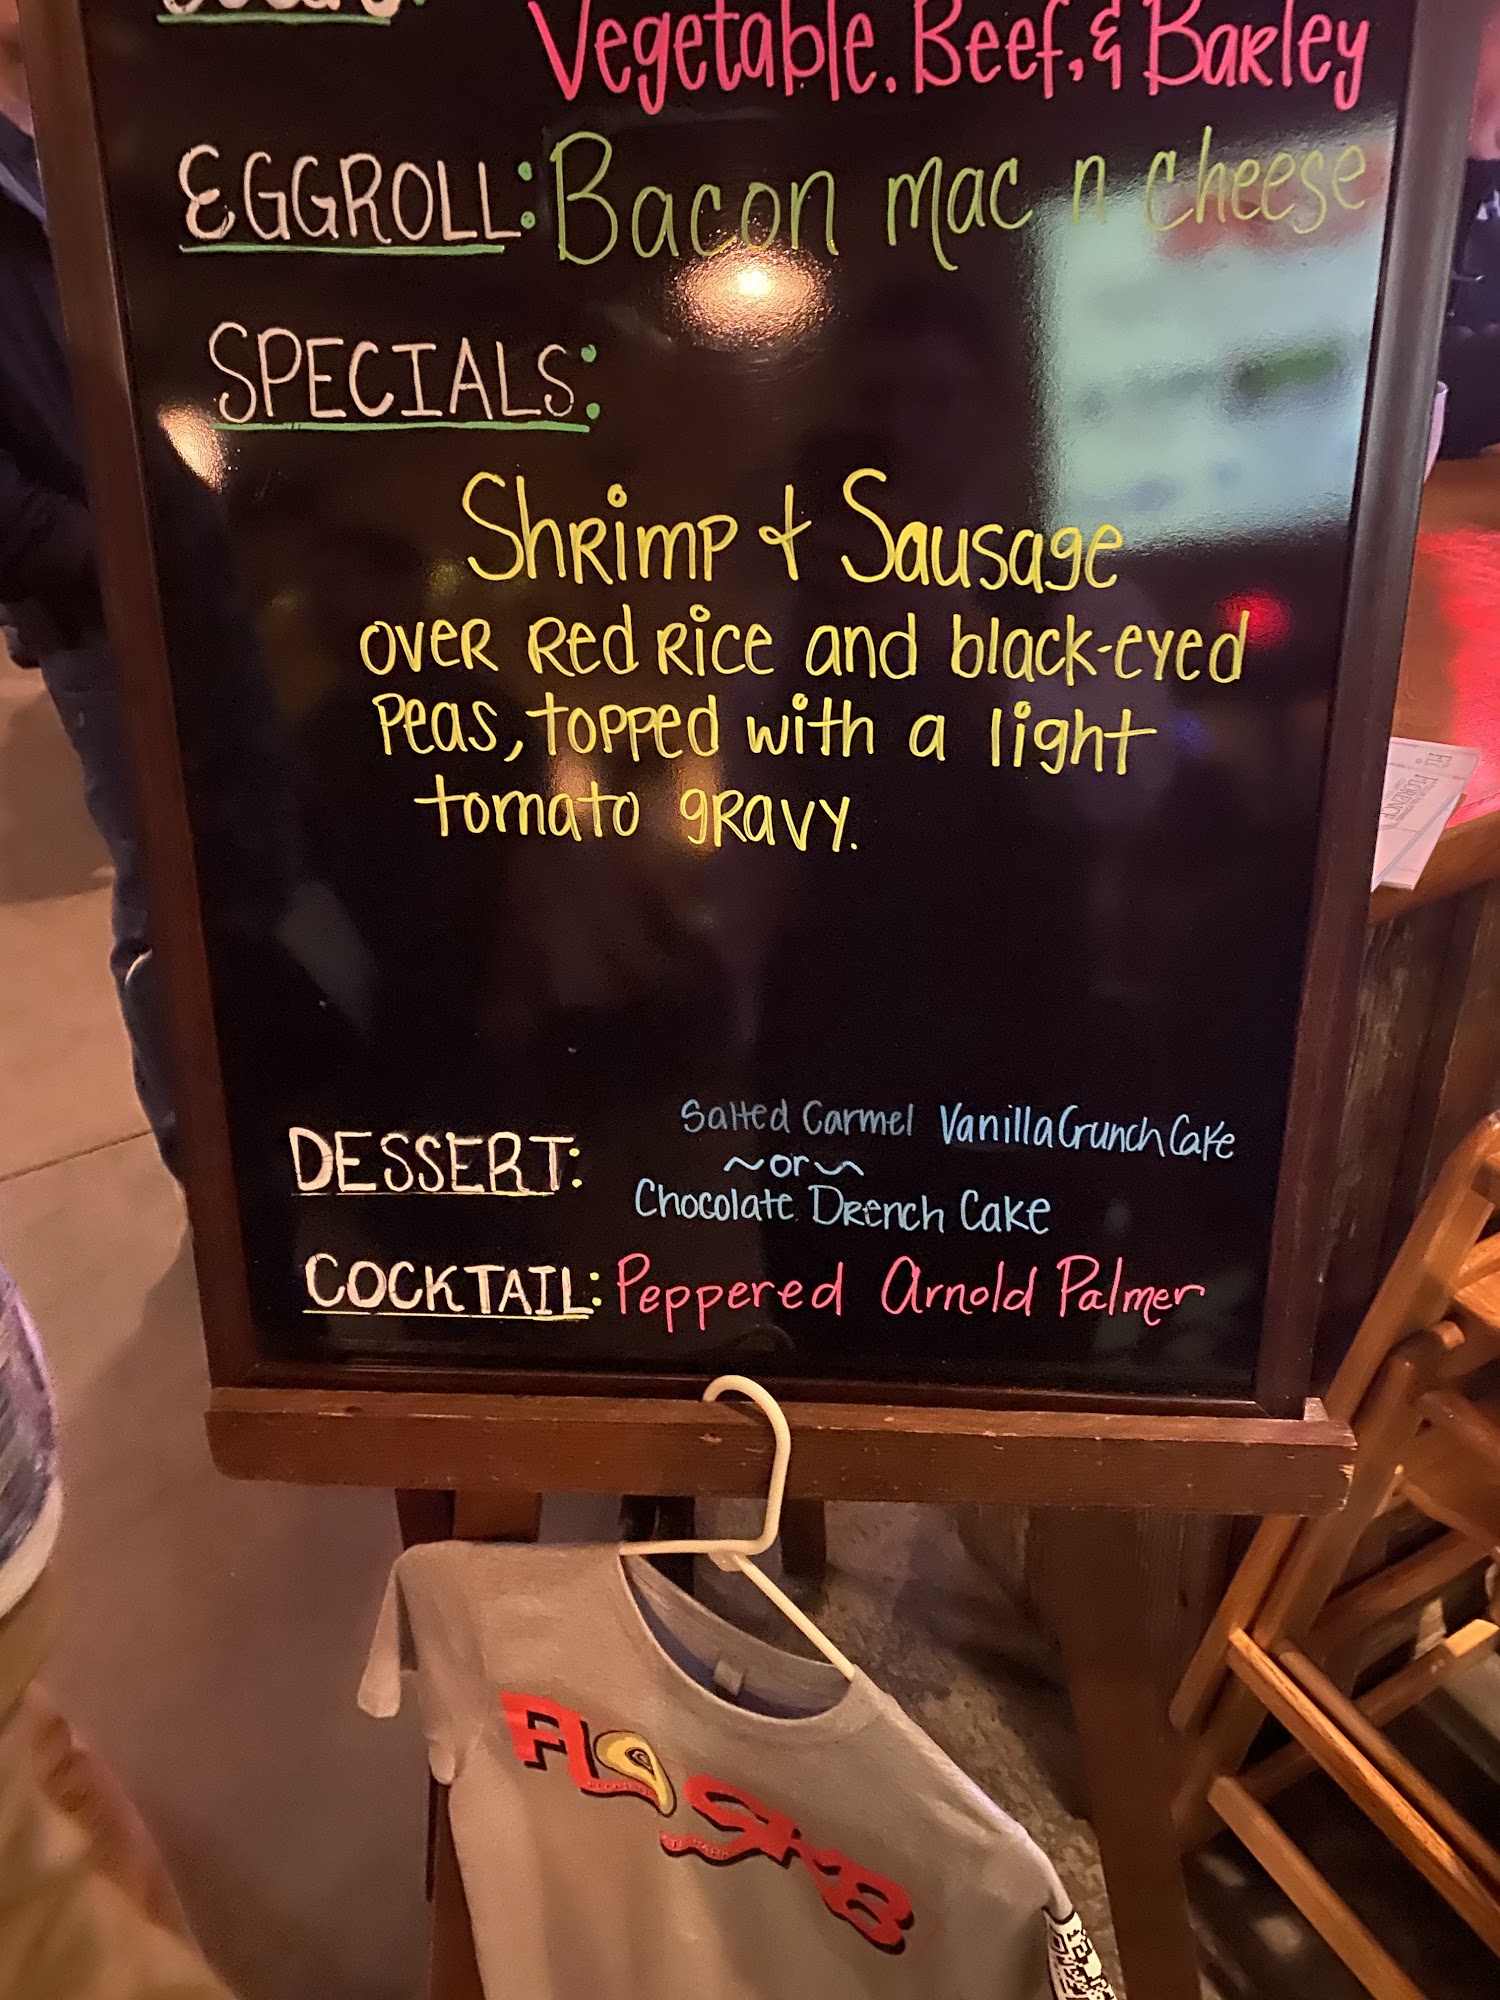 Vegetable, Beef, & Barley
EGGROLL: Bacon mac n cheese
SPECIALS:
Shrimp + Sausage
over Red Rice and black-eyed
Peas, topped with a light
tomato gravy.
DESSERT:
Salted Carmel Vanilla Crunch Cake
~or~
Chocolate Drench Cake
COCKTAIL: Peppered Arnold Palmer
FLORENCE